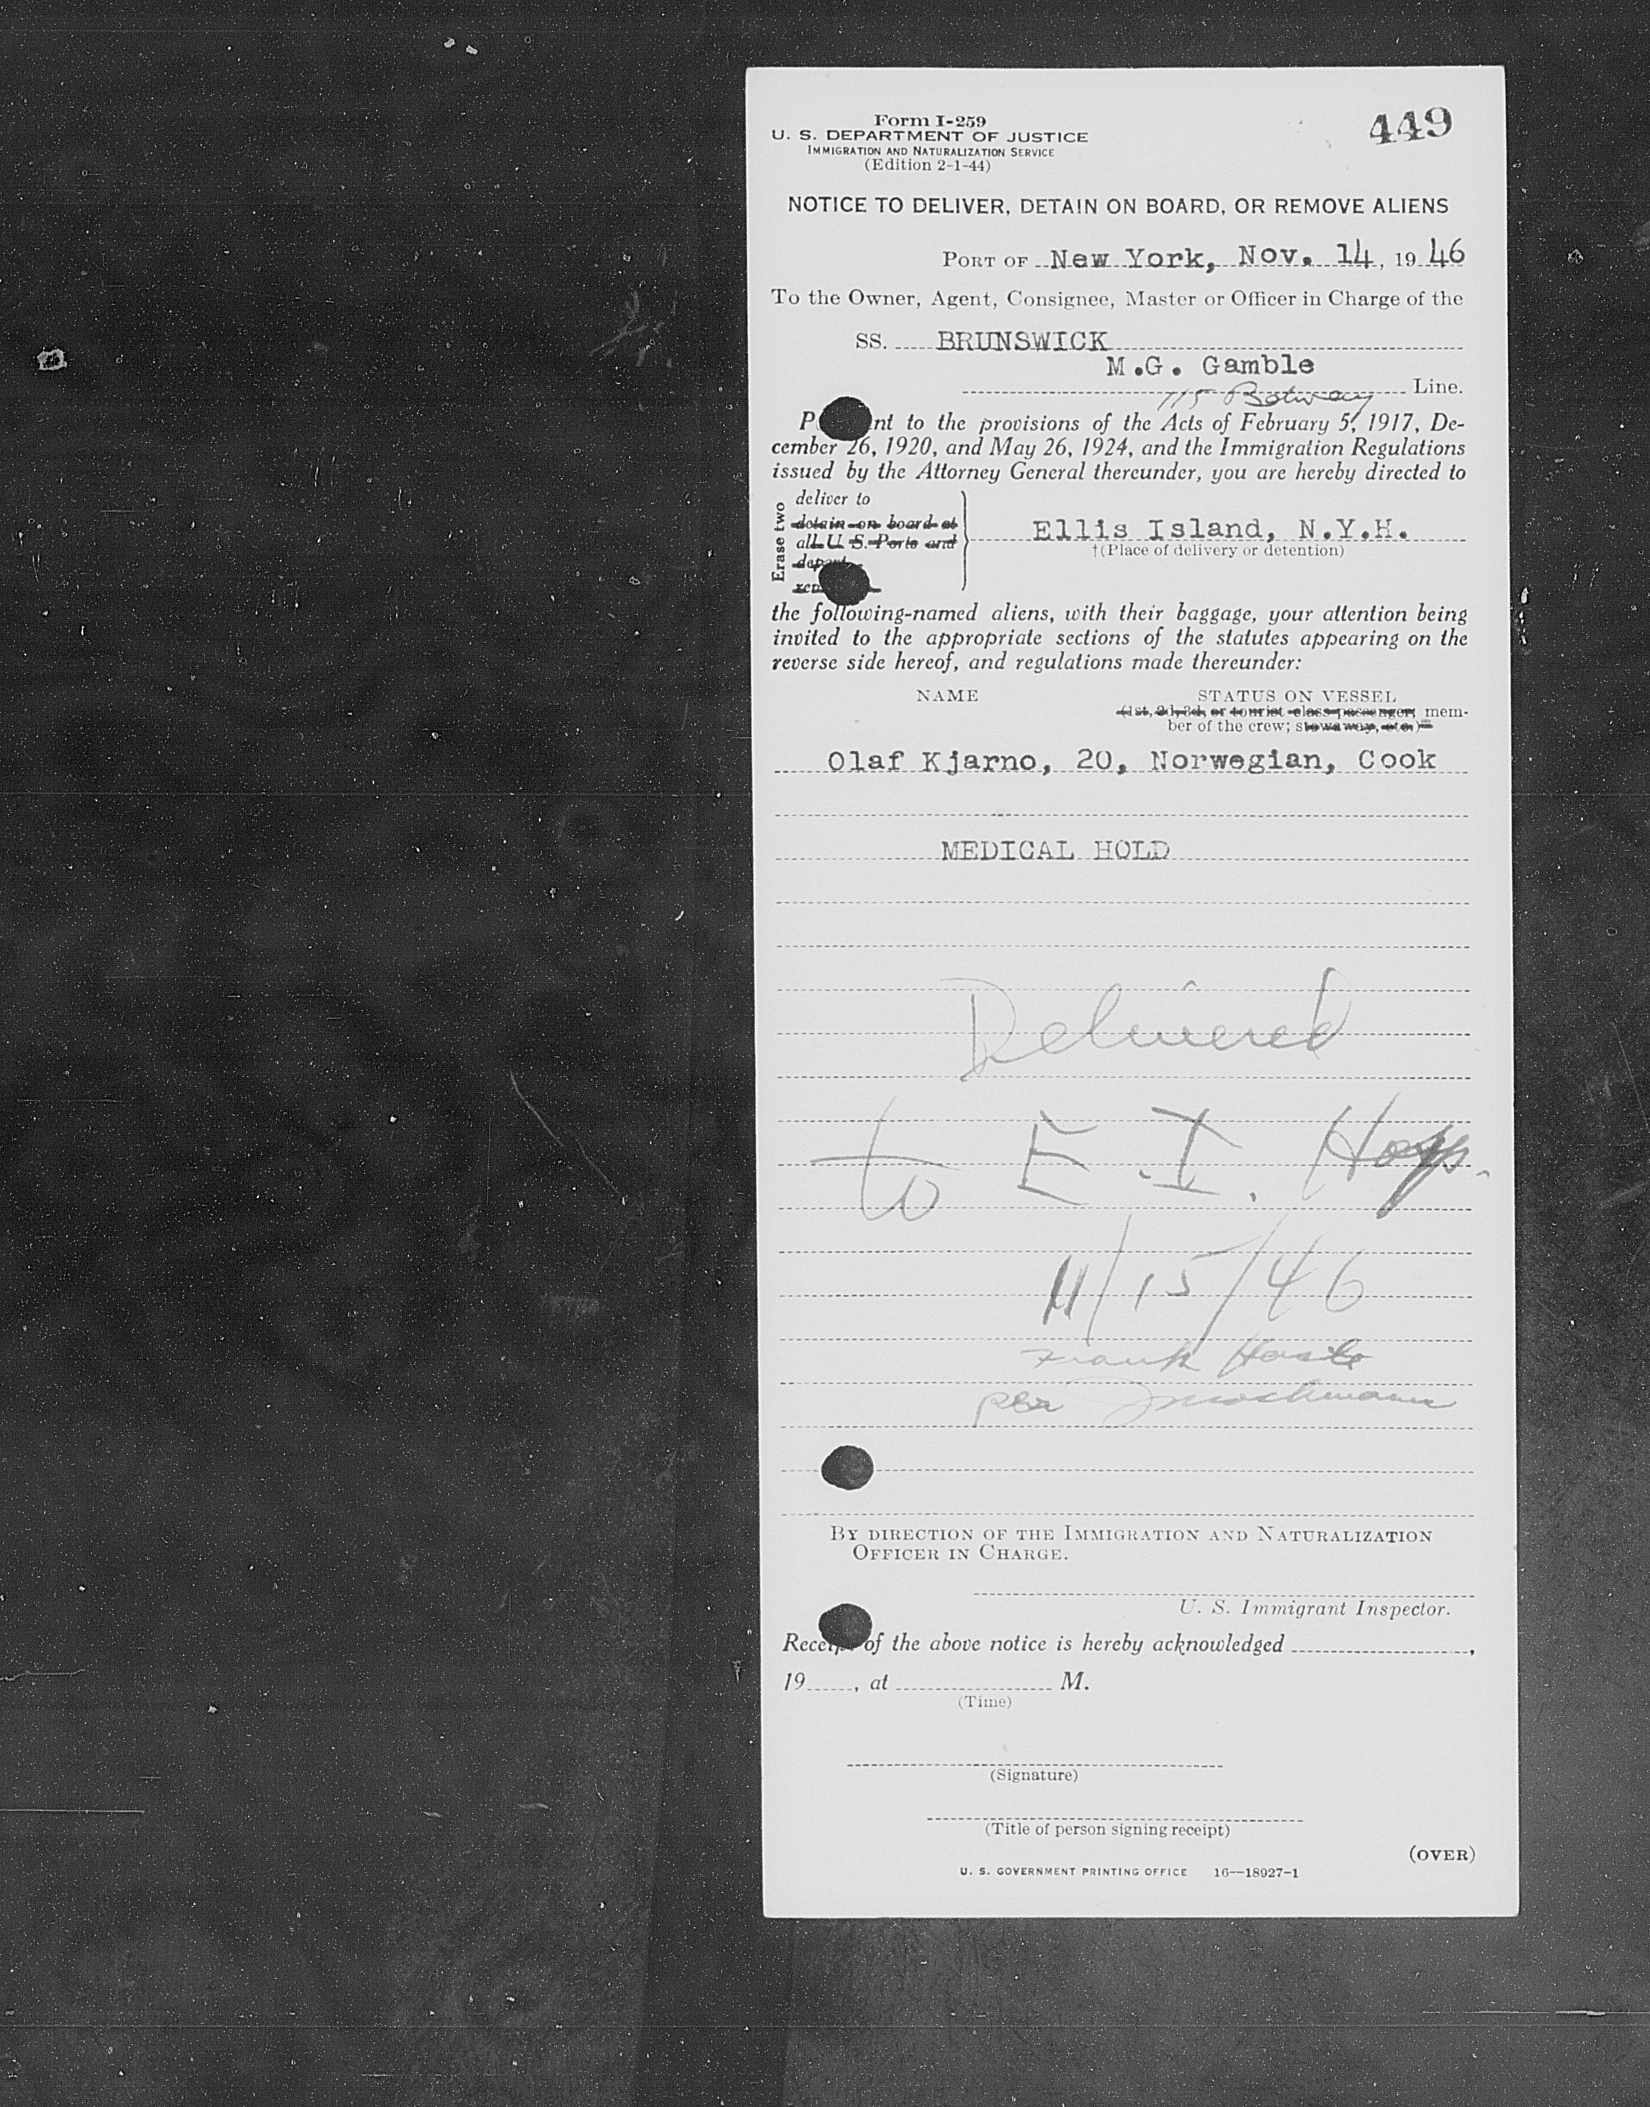 Form I-259
U. S. DEPARTMENT OF JUSTICE
IMMIGRATION AND NATURALIZATION SERVICE
(Edition 2-1-44)
449
NOTICE TO DELIVER, DETAIN ON BOARD, OR REMOVE ALIENS
PORT OF New York, Nov. 14, 19 46
To the Owner, Agent, Consignee, Master or Officer in Charge of the
SS. BRUNSWICK
M.G. Gamble
Line.
115
nt to the provisions of the Acts of February 5, 1917, De-
cember 26, 1920, and May 26, 1924, and the Immigration Regulations
issued by the Attorney General thereunder, you are hereby directed to
Erase two
deliver to
detain on board at
all U. S. Ports and
Ellis Island, N.Y.H.
†(Place of delivery or detention)
the following-named aliens, with their baggage, your attention being
invited to the appropriate sections of the statutes appearing on the
reverse side hereof, and regulations made thereunder:
NAME STATUS ON VESSEL
(1st, 2d, 3d, or tourist class passenger; mem-
ber of the crew; stowaway, etc.)
Olaf Kjarno, 20, Norwegian, Cook
MEDICAL HOLD
Delivered
to E.I. Hosp.
11/15/46
Frank
per
BY DIRECTION OF THE IMMIGRATION AND NATURALIZATION
OFFICER IN CHARGE.
U. S. Immigrant Inspector.
Receipt of the above notice is hereby acknowledged ,
19 , at M.
(Time)
(Signature)
(Title of person signing receipt)
(OVER)
U. S. GOVERNMENT PRINTING OFFICE 16—18927-1